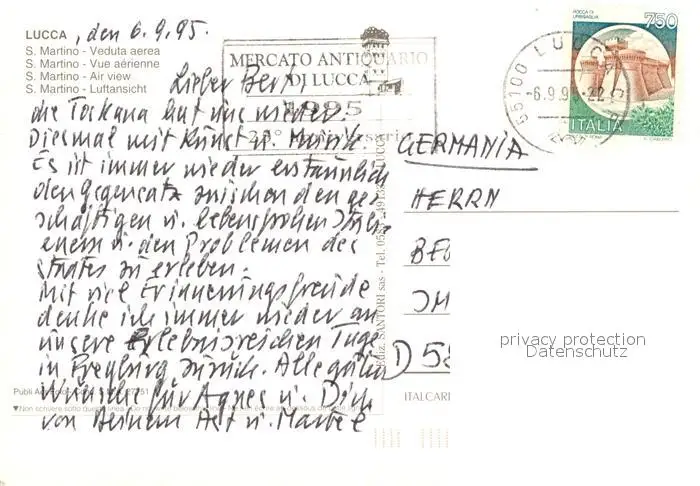 LUCCA, den 6.9.95.
S. Martino - Veduta aerea
S. Martino - Vue aérienne
S. Martino - Air view
S. Martino - Luftansicht
MERCATO ANTIQUARIO
DI LUCCA
1995
25° Anniversario
55100 LUCCA
-6.9.95-22
ROCCA DI
URBISAGLIA
750
ITALIA
Lieber Bernd
die Toskana hat uns wieder.
Diesmal mit Kunst u. Musik.
Es ist immer wieder erstaunlich
den Gegensatz zwischen den ge-
schäftigen u. lebensfrohen Itali-
enern u. den Problemen des
Staates zu erleben.
Mit viel Erinnerungsfreude
denke ich immer wieder an
unsere Erlebnisreichen Tage
in Freyburg zurück. Alle guten
Wünsche für Agnes u. Dich
von Deinem u.
GERMANIA
HERRN
BE
JM
D 58
privacy protection
Datenschutz
Ediz. SANTORI sas - Tel. LUCCA
ITALCAR
Publi